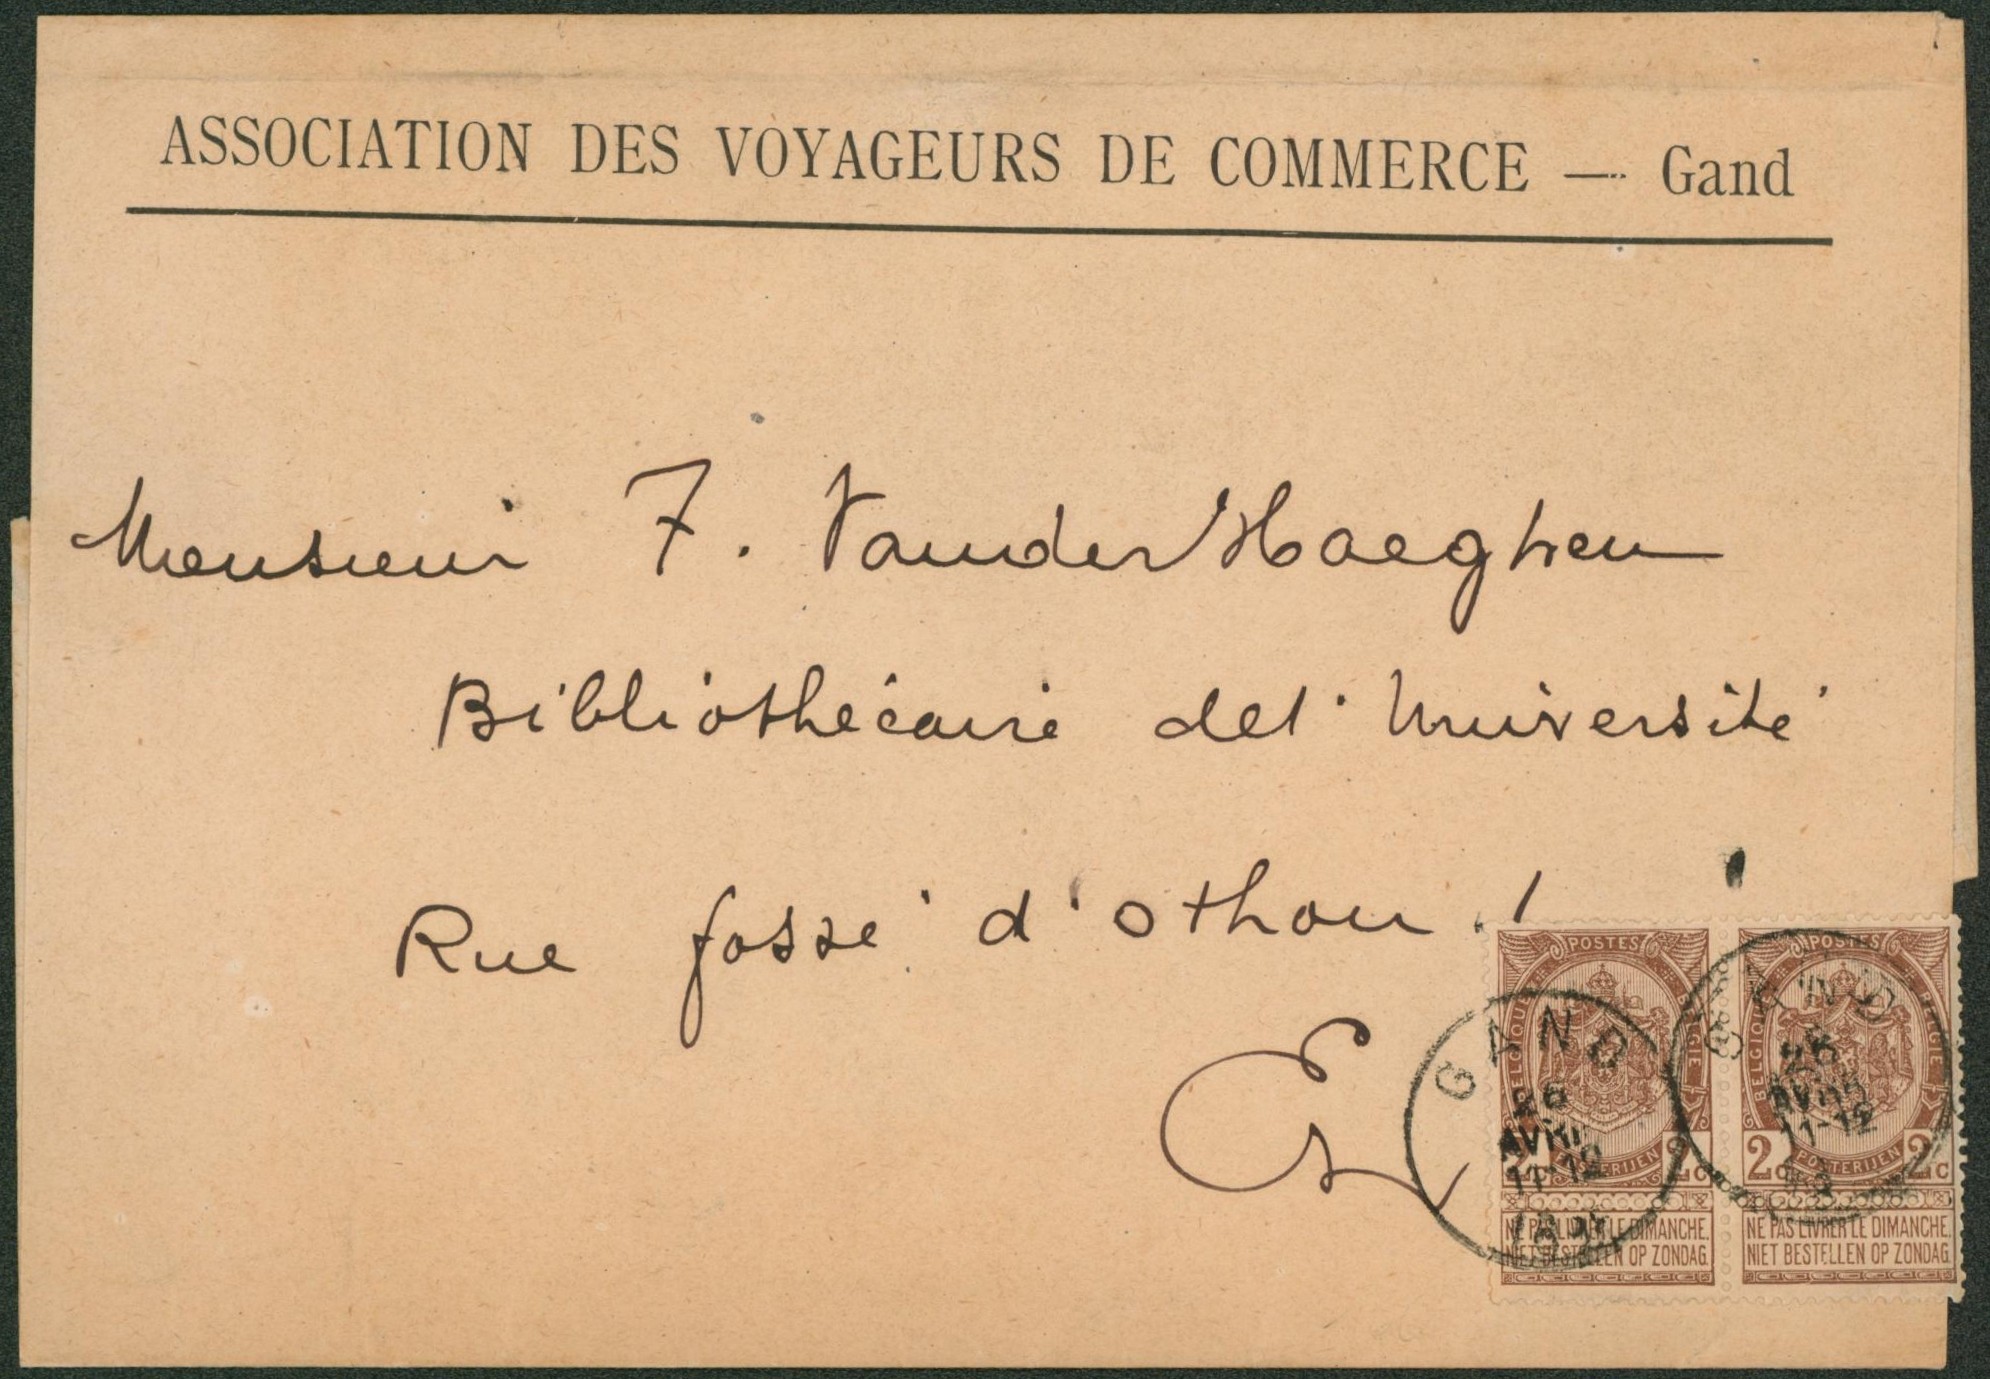 ASSOCIATION DES VOYAGEURS DE COMMERCE — Gand
Monsieur F. VanderHaeghen
Bibliothécaire de l'Université
Rue fossé d'othon. 1
E/V
POSTES
BELGIQUE BELGIE
2c 2c
POSTERIJEN
NE PAS LIVRER LE DIMANCHE.
NIET BESTELLEN OP ZONDAG.
POSTES
BELGIQUE BELGIE
2c 2c
POSTERIJEN
NE PAS LIVRER LE DIMANCHE.
NIET BESTELLEN OP ZONDAG.
GAND
26
AVRIL
11-12
GAND
26
AVRIL
11-12